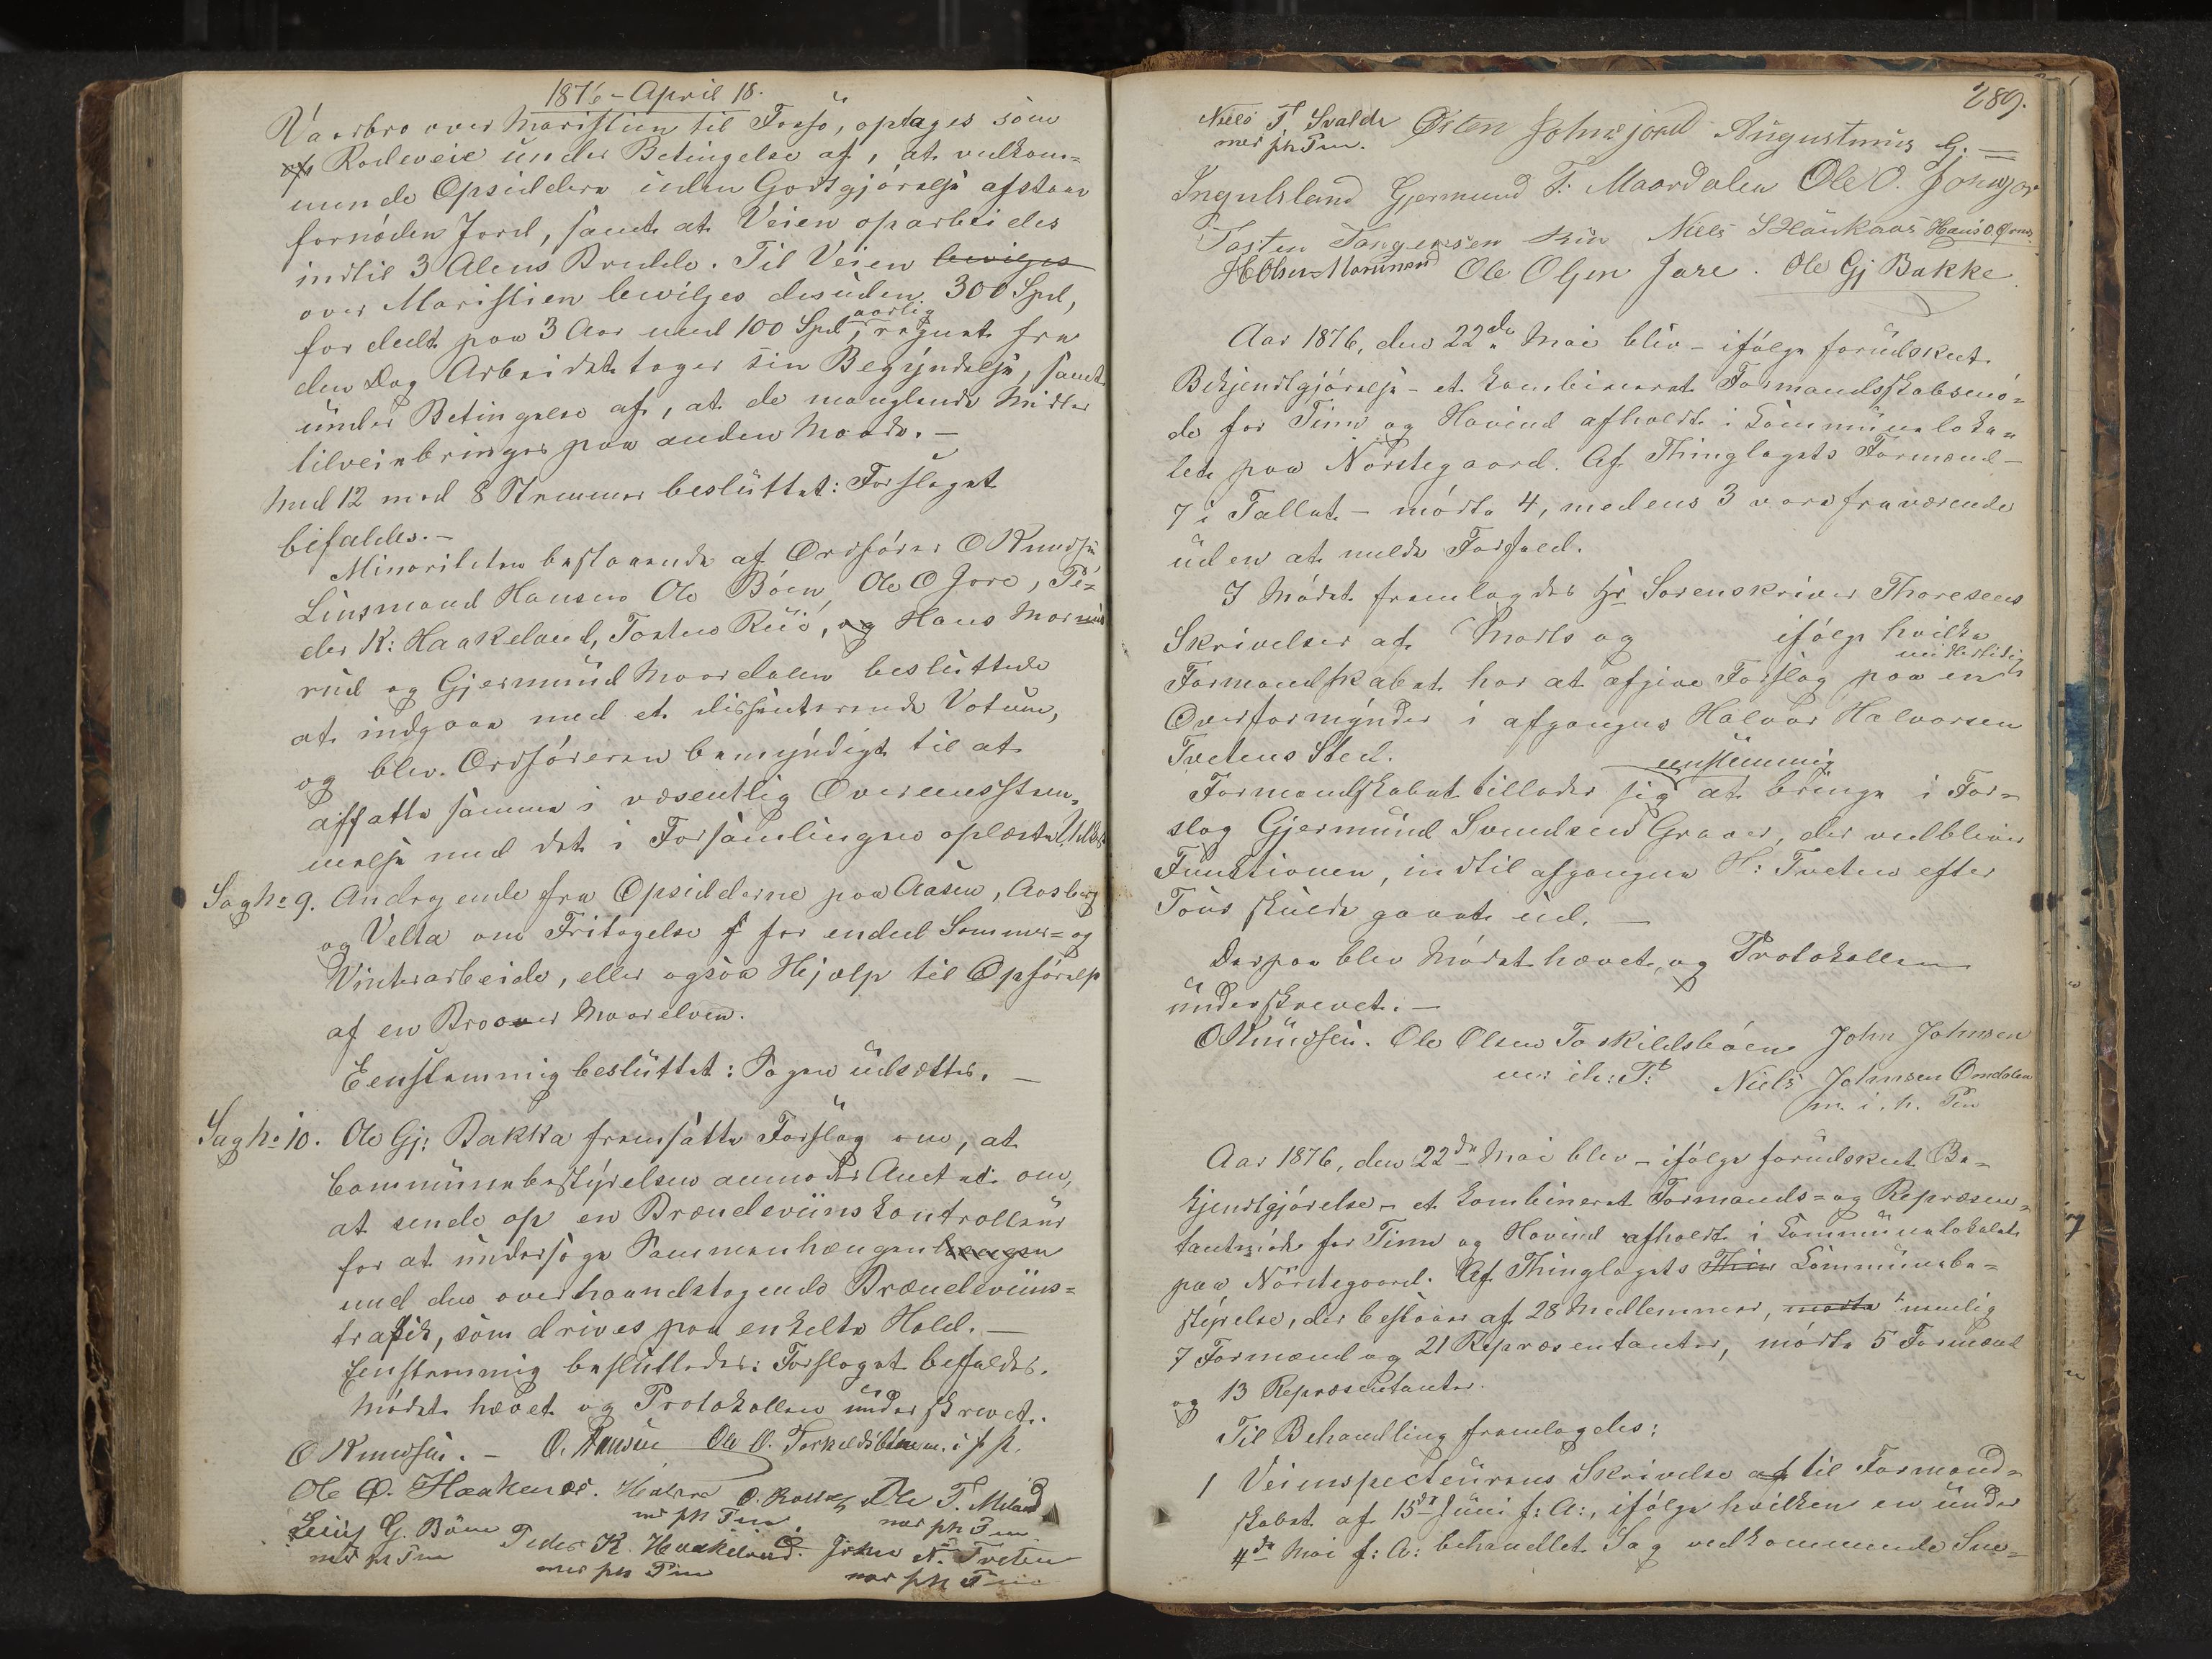 1876 - April 18.
Vaarbro over Maristien til Fossø, optages som
Rodeveie under Betingelse af, at vedkom-
mende Opsiddere uden Godtgjørelse afstaar
fornøden Jord, samt at Veien oparbeides
indtil 3 Alens Bredde. Til Veien
over Maristien bevilges desuden 300 Spd,
fordelt paa 3 Aar med 100 Spd aarlig, regnet fra
den Dag Arbeidet tager sin Begyndelse, samt
under Betingelse af, at de manglende Midler
tilveiebringes paa anden Maade. -
Med 12 mod 8 Stemmer besluttet: Forslaget
bifaldes. -
Minoriteten bestaaende af Ordfører O Knudsen
Linsmand Hansen Ole Bøen, Ole O Jore, Pe-
der K: Haakeland, Tosten Rui, og Hans Mor
rud og Gjermund Maardalen besluttede
at indgaae med et dissenterende Votum,
og blev Ordføreren bemyndiget til at
affatte samme i væsentlig Overensstem-
melse med det i Forsamlingen oplæste Udkast
Sag No 9. Andragende fra Opsidderne paa Aasen, Aasberg
og Velta om Fritagelse f for endeel Sommer- og
Vinterarbeide, eller ogsaa Hjælp til Opførelse
af en Bro over Maarelven.
Eenstemmig besluttet: Sagen udsættes. -
Sag No 10. Ole Gj: Bakka fremsatte Forslag om, at
Communebestyrelsen anmoder Amtet om,
at sende op en Brændeviinskontrollør
for at undersøge Sammenhængen
med den overhaandtagende Brændeviins-
trafik, som drives paa enkelte Hold. -
Eenstemmig besluttedes: Forslaget bifaldes.
Mødet hævet og Protokollen underskrevet.
O Knudsen. - O. Hansen Ole O. Torkildsbøen m. i p. p.
Ole O. Haakenæs. Halvor O. Ole T. Meland
med ph Pen. med ph Pen
G. Bøen Peder K. Haakeland. John N. Tveten
med ph Pen med ph Pen med ph Pen
289.
Niels T Svalde Østen Johnsjord Augustinus G. -
med ph Pen.
Ingulsland Gjermund T. Maardalen Ole O.
Tosten Torgersen Rui Niels S Haukaas Hans O.
H Olsen Ole Olsen Jore. Ole Gj Bakke.
Aar 1876, den 22de Mai blev - ifølge forudskeet
Bekjendtgjørelse - et kombineret Formandsskabsmø-
de for Tinn og Hovind afholdt i Communeloka-
let paa Nørstegaard. Af Thinglagets Formænd -
7 i Tallet - mødte 4, medens 3 vare fraværende
uden at melde Forfald.
I Mødet fremlagdes Hr Sorenskriver Thoresens
Skrivelser af Marts og ifølge hvilke
Formandskabet har at afgive Forslag paa en midlertidig
Overformynder i afgangne Halvor Halvorsen
Tvetens Sted.
Formandskabet tillader sig eenstemmig at bringe i For-
slag Gjermund Svendsen Graver, der vedbliver
Funktionen, indtil afgangne H: Tveten efter
Tour skulde gaaet ud. -
Derpaa blev Mødet hævet, og Protokollen
underskrevet. -
O Knudsen. Ole Olsen Torkildsbøen John Johnsen
Niels Johnsen Omdalen
m. i. h. Pen
Aar 1876, den 22de Mai blev - ifølge forudskeet Be-
kjendtgjørelse - et kombineret Formands- og Repræsen-
tantmøde for Tinn og Hovind afholdt i Communelokalet
paa Nørstegaard. Af Thinglagets Thin Communebe-
styrelse, der bestaaer af 28 Medlemmer, mødte nemlig
7 Formænd og 21 Repræsentanter, mødte 5 Formænd
og 13 Repræsentanter.
Til Behandling fremlagdes:
1 Veiinspecteurens Skrivelse af til Formand-
skabet af 15de Juni f: A:, ifølge hvilken en under
4de Mai f: A: behandlet Sag vedkommende Sne-